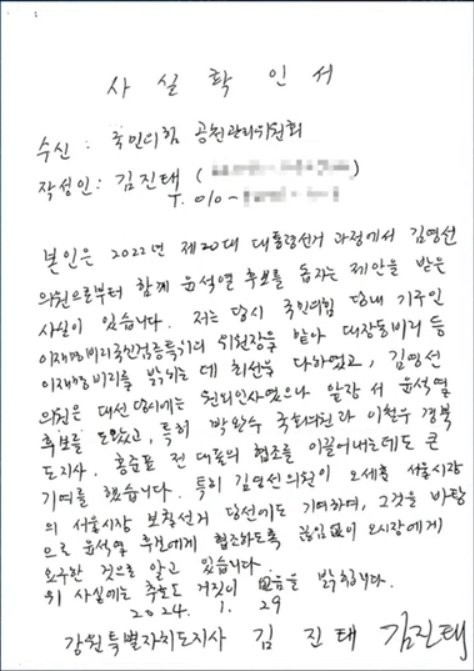 사 실 확 인 서
수신 : 국민의힘 공천관리위원회
작성인 : 김진태 (
T. 010-
본인은 2022년 제20대 대통령선거 과정에서 김영선
의원으로부터 함께 윤석열 후보를 돕자는 제안을 받은
사실이 있습니다. 저는 당시 국민의힘 당내 기구인
이재명비리국민검증특위의 위원장을 맡아 대장동비리 등
이재명 비리를 밝히는 데 최선을 다하였고, 김영선
의원은 대선 당시에는 원외인사였으나 앞장 서 윤석열
후보를 도왔고, 특히 박완수 국회의원과 이철우 경북
도지사, 홍준표 전 대표의 협조를 이끌어내는데도 큰
기여를 했습니다. 특히 김영선의원이 오세훈 서울시장
의 서울시장 보칠선거 당선에도 기여하며, 그것을 바탕
으로 윤석열 후보에게 협조하도록 끊임없이 오시장에게
요구한 것으로 알고 있습니다.
위 사실에는 추호도 거짓이 없음을 밝힙니다.
2024. 1. 29
강원특별자치도지사 김 진 태 김진태